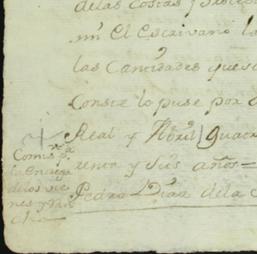 delas Costas y
mi El Escrivano la
las Cantidades que se
Conste lo puse por
Real y Abril, quatro
renta y seis años =
Pedro Diaz dela
Comis.n pa.
la entrega
delos vie
nes y